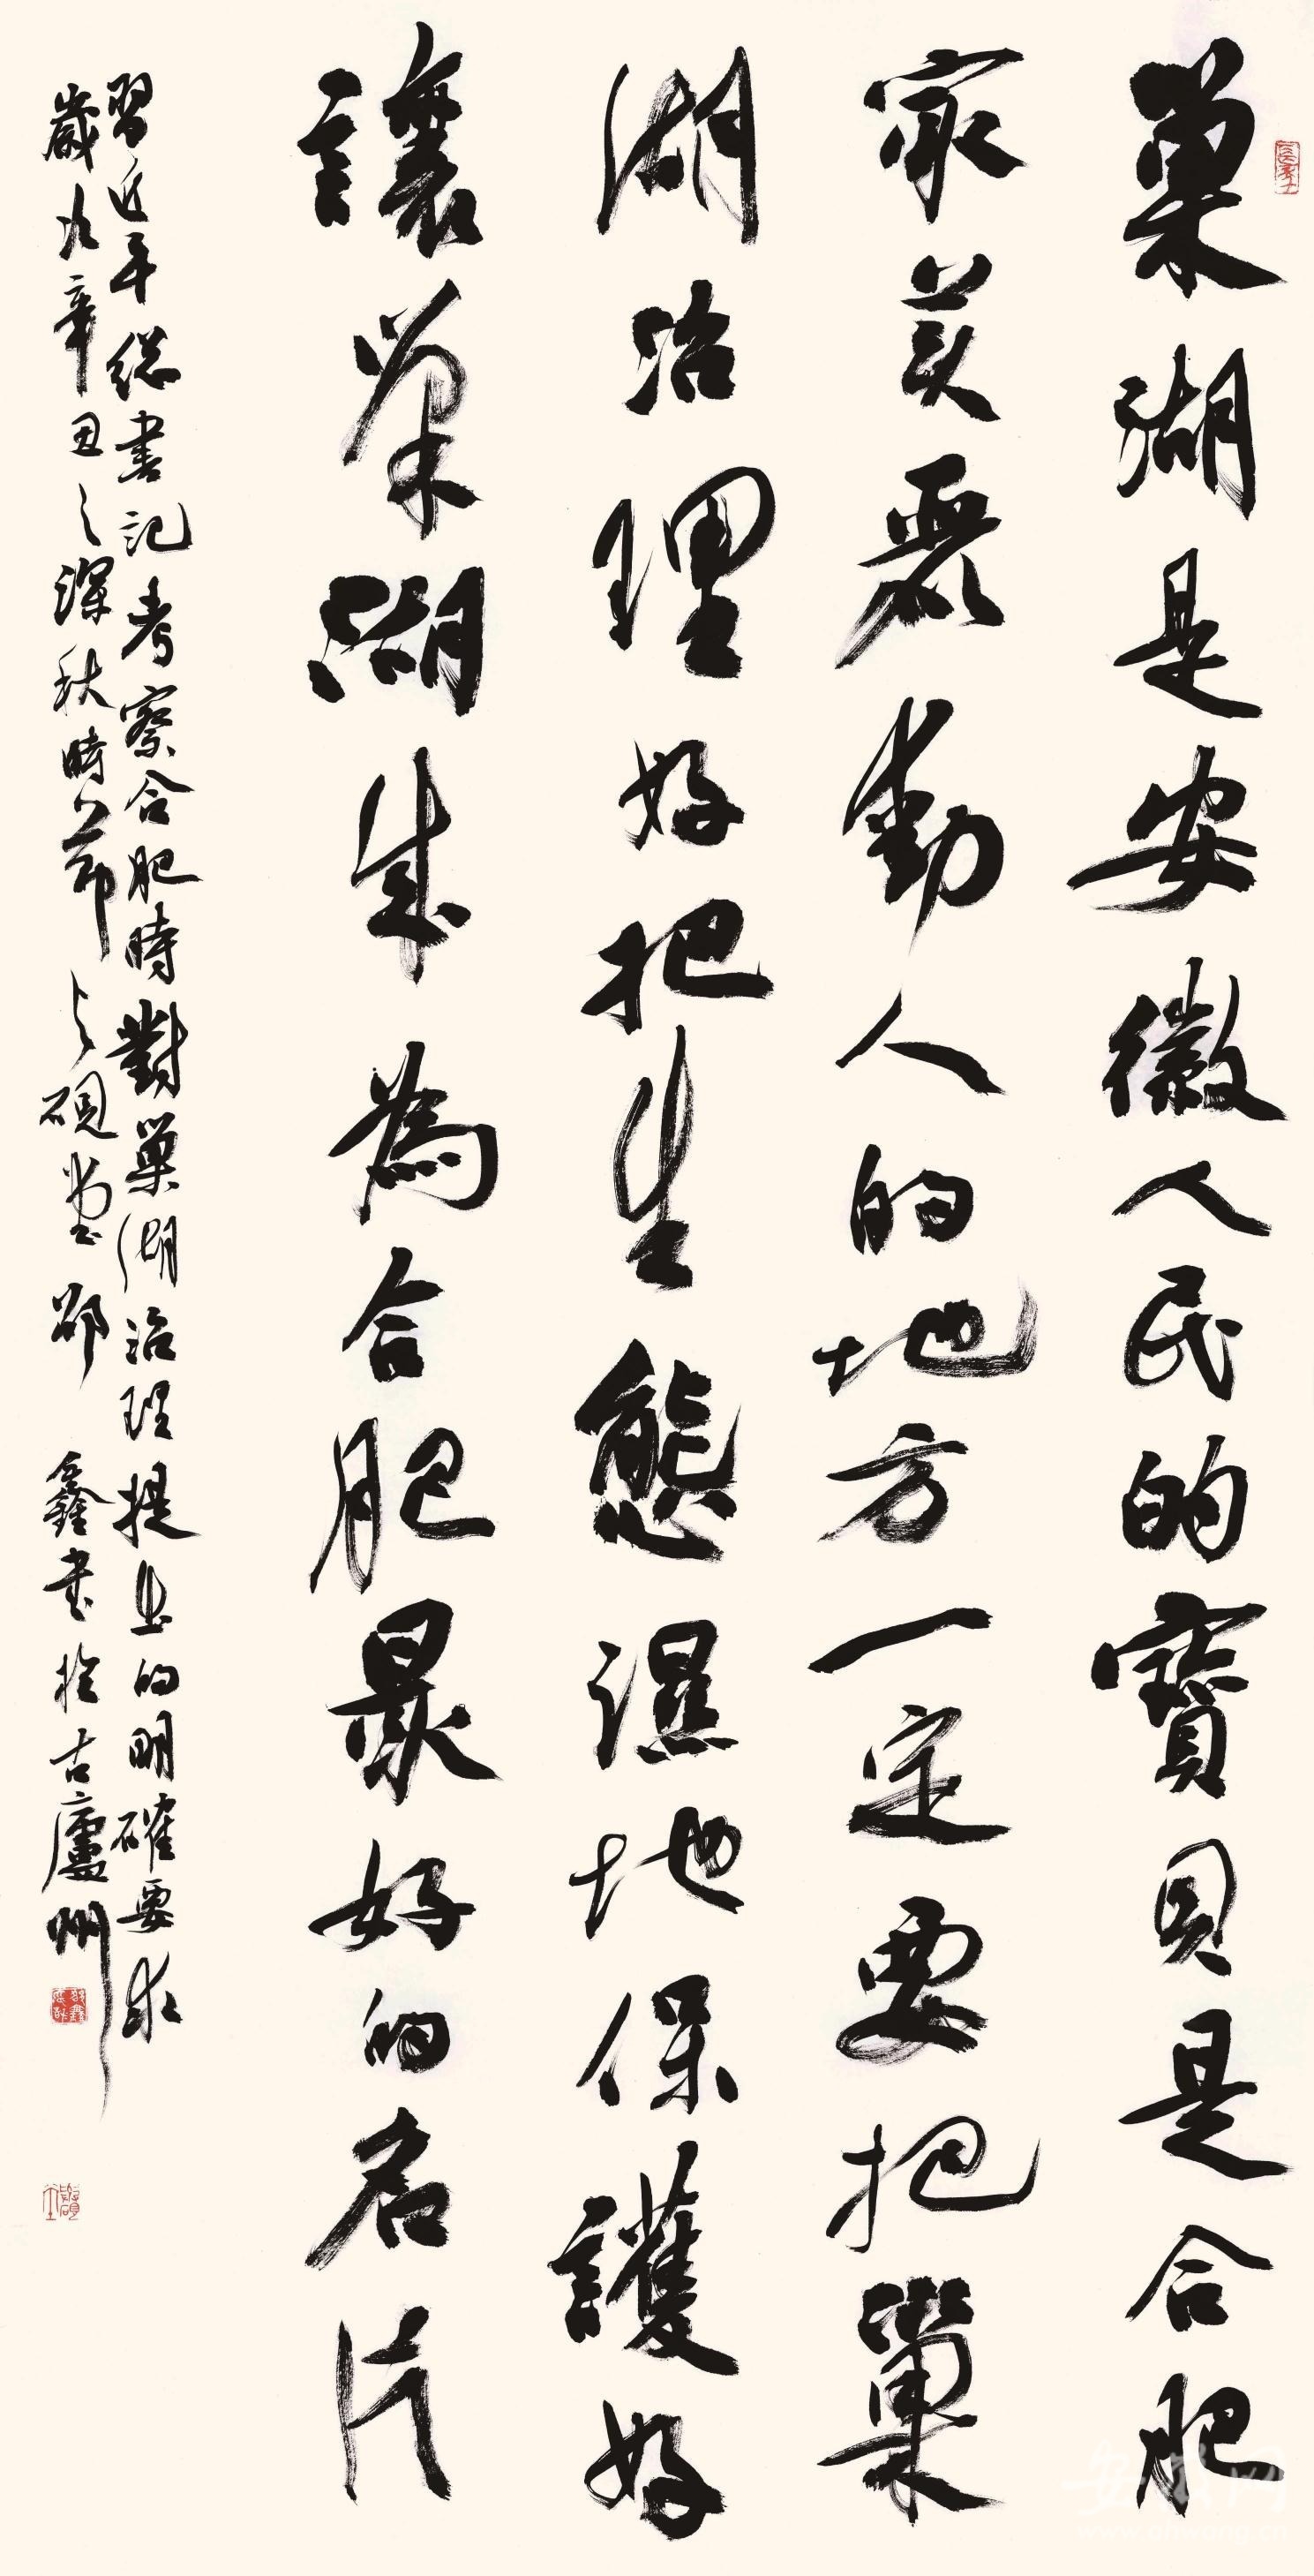 巢湖是安徽人民的寶貝是合肥
最美麗動人的地方一定要把巢
湖治理好把生態濕地保護好
讓巢湖成為合肥最好的名片
習近平總書記考察合肥時對巢湖治理提出的明確要求
歲次辛丑之深秋時節硯堂邵鑫書於古廬州
安徽网
www.ahwang.cn